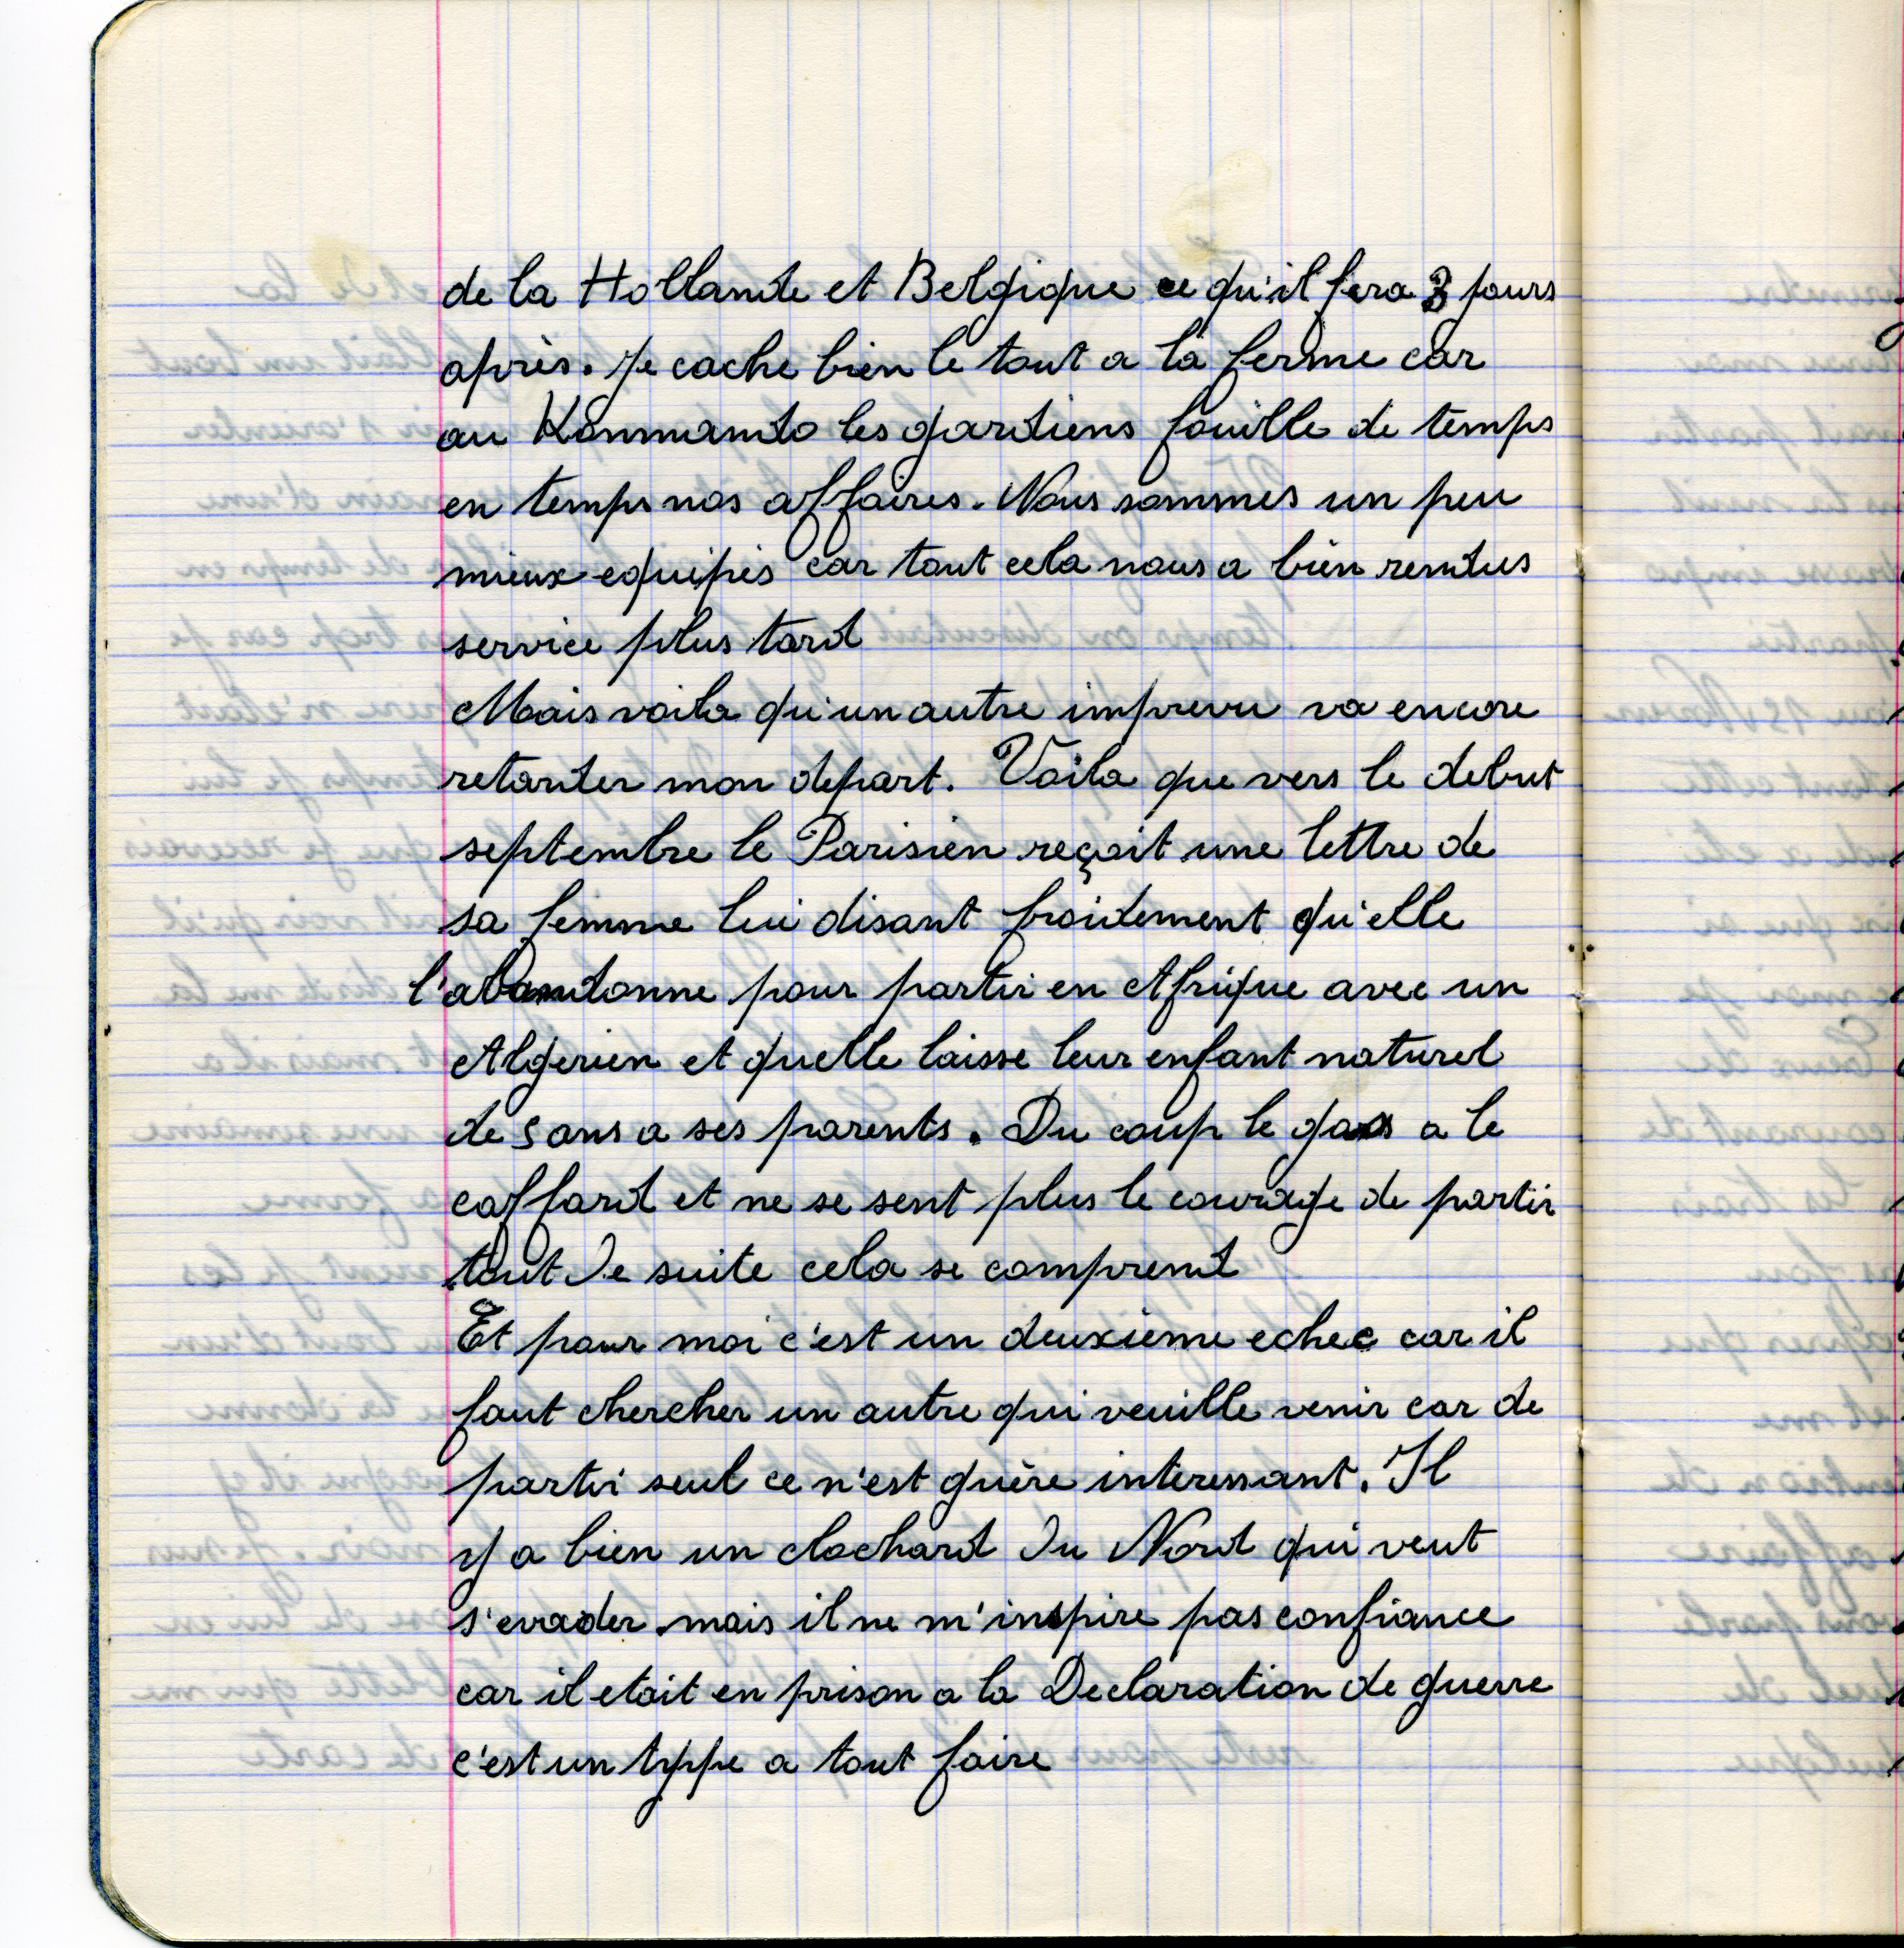 de la Hollande et Belgique ce qu'il fera 3 jours
après. Je cache bien le tout a la ferme car
au Kommando les gardiens fouille de temps
en temps nos affaires. Nous sommes un peu
mieux equipés car tout cela nous a bien rendus
service plus tard
Mais voila qu'un autre imprevu va encore
retarder mon depart. Voila que vers le debut
septembre le Parisien reçoit une lettre de
sa femme lui disant froidement qu'elle
l'abandonne pour partir en Afrique avec un
Algerien et quelle laisse leur enfant naturel
de 5 ans a ses parents. Du coup le gars a le
caffard et ne se sent plus le courage de partir
tout de suite cela se comprend
Et pour moi c'est un deuxieme echec car il
faut chercher un autre qui veuille venir car de
partir seul ce n'est guère interessant. Il
y a bien un clochard du Nord qui veut
s'evader mais il ne m'inspire pas confiance
car il etait en prison a la Declaration de guerre
c'est un type a tout faire